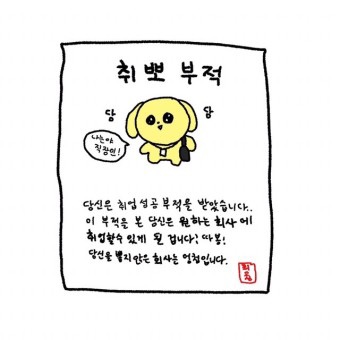 취뽀 부적
담 담
나는야
직장인!
당신은 취업 성공 부적을 받았습니다..
이 부적을 본 당신은 원하는 회사에
취업할수 있게 된 겁니다; 따봉!
당신을 뽑지 않은 회사는 멍청입니다.